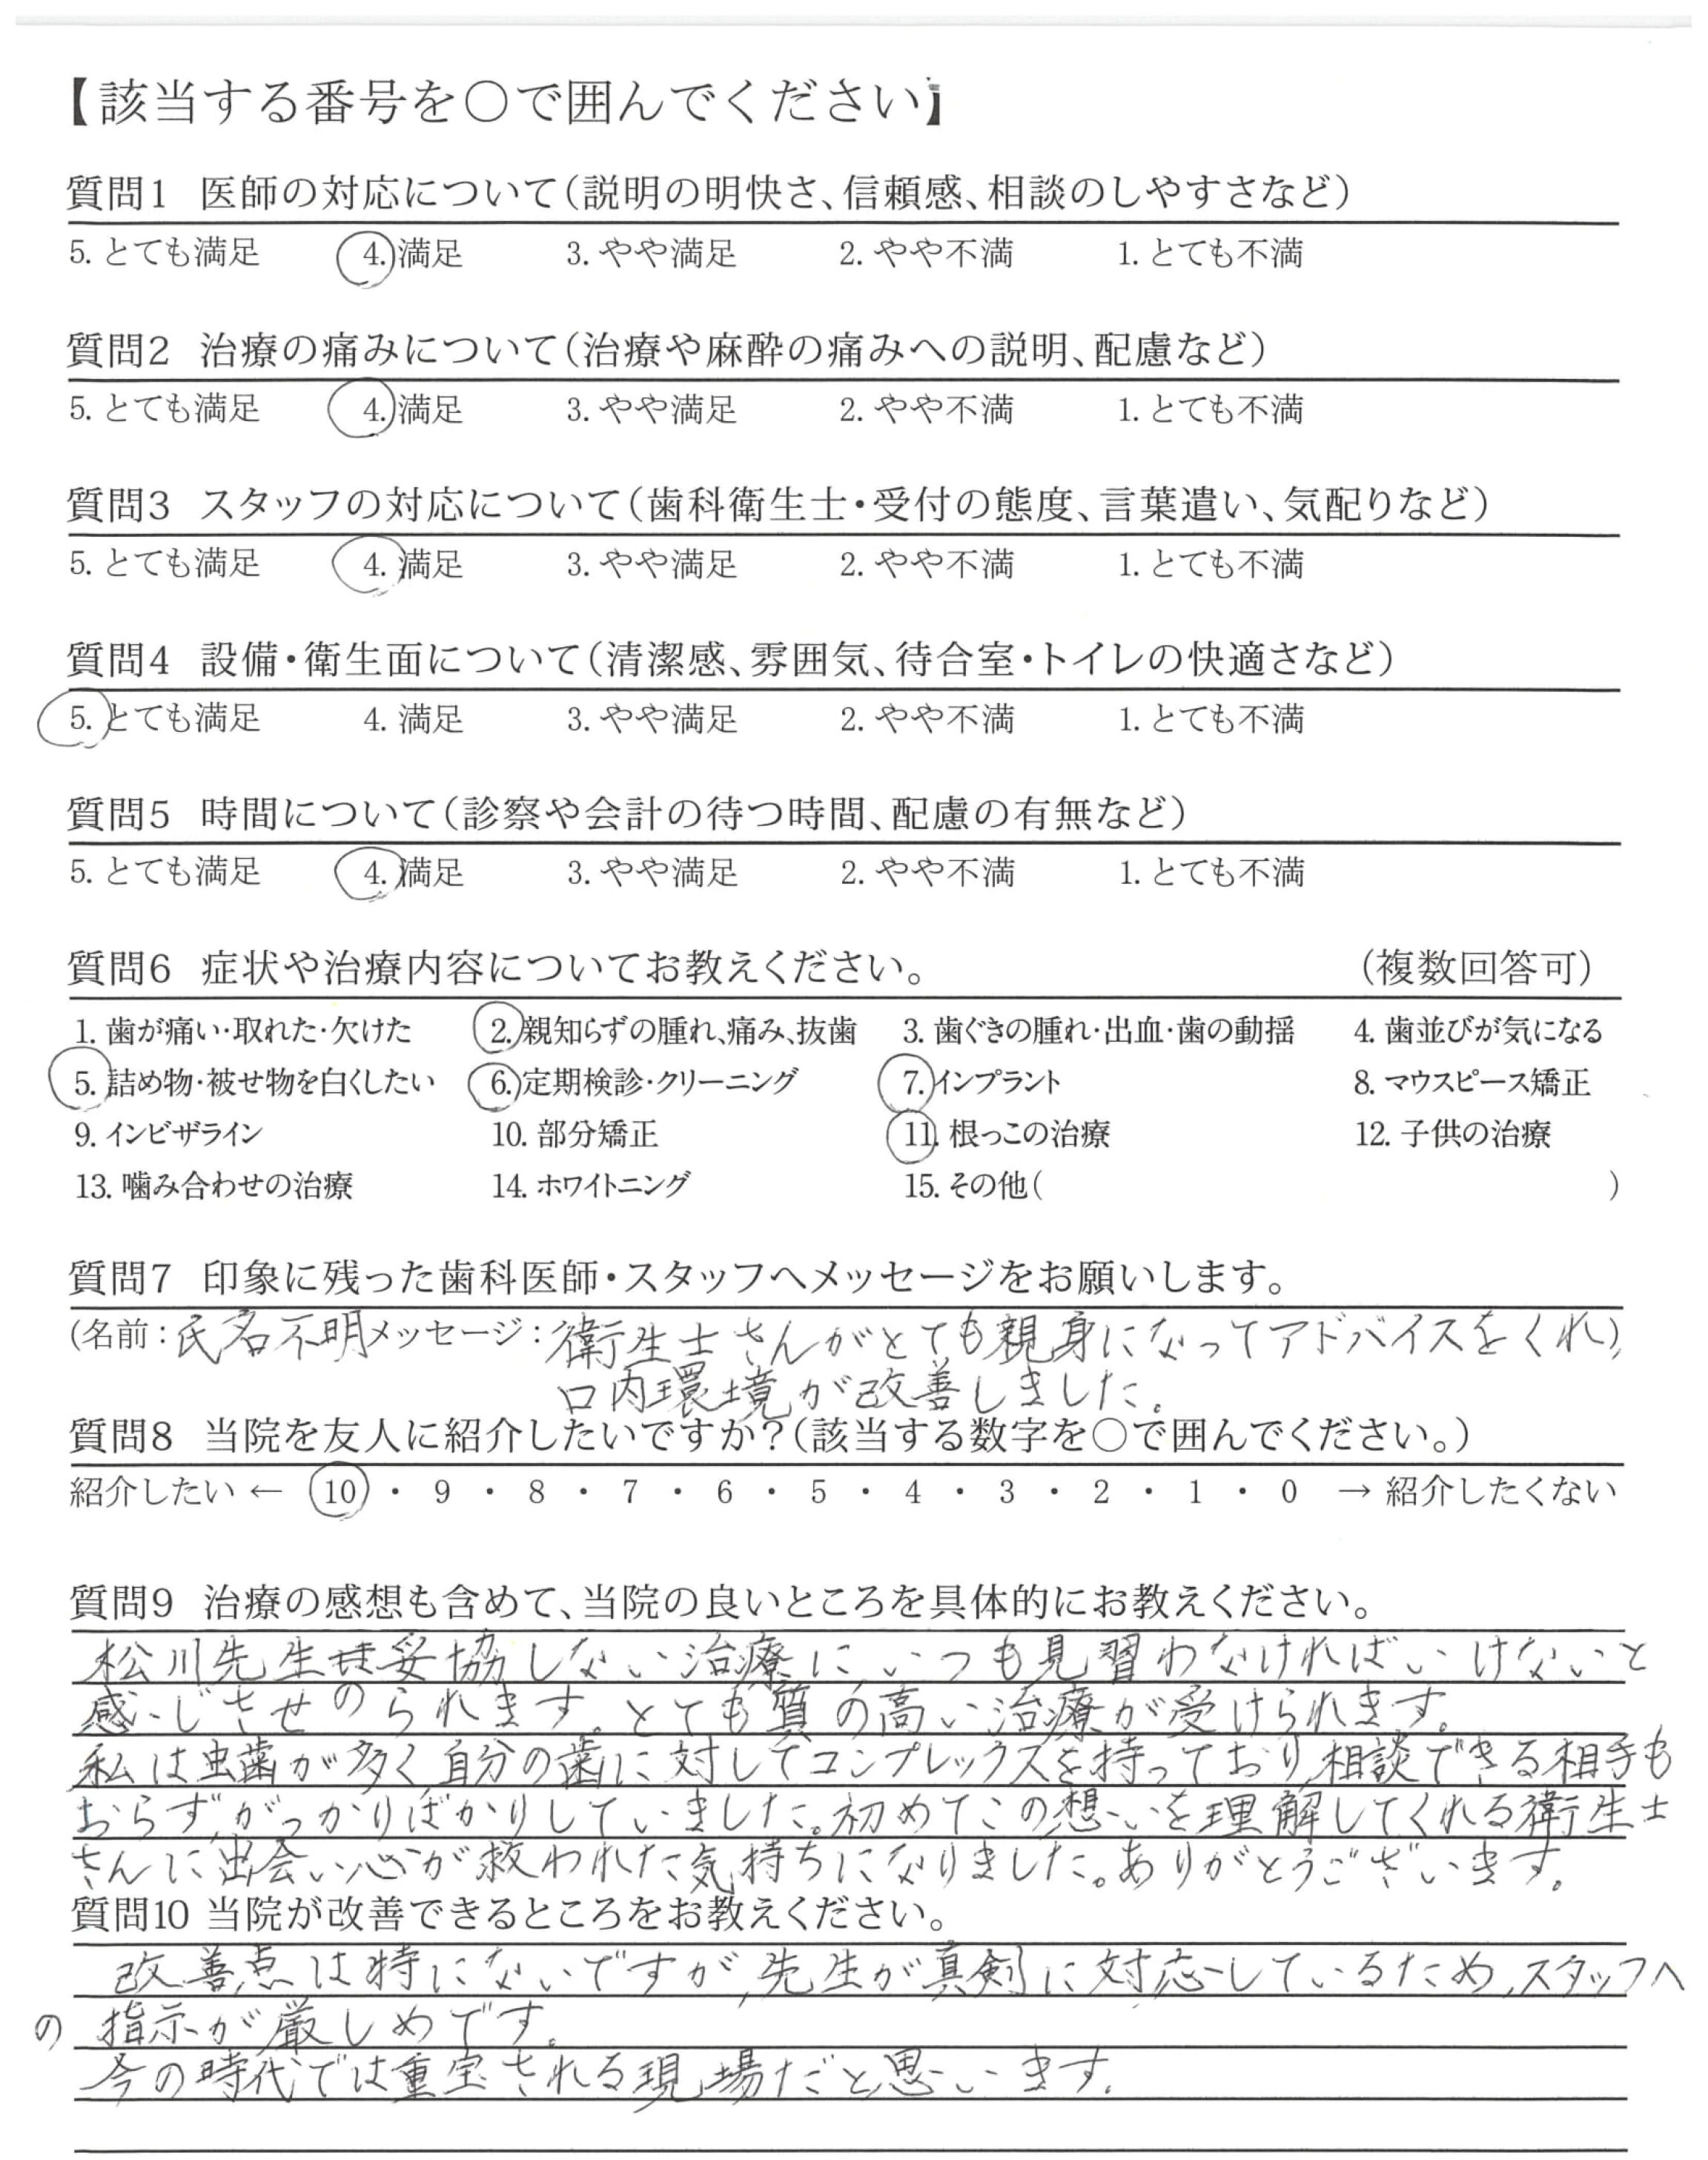 【該当する番号を○で囲んでください】
質問1 医師の対応について(説明の明快さ、信頼感、相談のしやすさなど)
5. とても満足 4. 満足 3. やや満足 2. やや不満 1. とても不満
質問2 治療の痛みについて(治療や麻酔の痛みへの説明、配慮など)
5. とても満足 4. 満足 3. やや満足 2. やや不満 1. とても不満
質問3 スタッフの対応について(歯科衛生士・受付の態度、言葉遣い、気配りなど)
5. とても満足 4. 満足 3. やや満足 2. やや不満 1. とても不満
質問4 設備・衛生面について(清潔感、雰囲気、待合室・トイレの快適さなど)
5. とても満足 4. 満足 3. やや満足 2. やや不満 1. とても不満
質問5 時間について(診察や会計の待つ時間、配慮の有無など)
5. とても満足 4. 満足 3. やや満足 2. やや不満 1. とても不満
質問6 症状や治療内容についてお教えください。 (複数回答可)
1. 歯が痛い・取れた・欠けた 2. 親知らずの腫れ、痛み、抜歯 3. 歯ぐきの腫れ・出血・歯の動揺 4. 歯並びが気になる
5. 詰め物・被せ物を白くしたい 6. 定期検診・クリーニング 7. インプラント 8. マウスピース矯正
9. インビザライン 10. 部分矯正 11. 根っこの治療 12. 子供の治療
13. 噛み合わせの治療 14. ホワイトニング 15. その他( )
質問7 印象に残った歯科医師・スタッフへメッセージをお願いします。
(名前:氏名不明メッセージ:衛生士さんがとても親身になってアドバイスをくれ)
口内環境が改善しました。
質問8 当院を友人に紹介したいですか?(該当する数字を○で囲んでください。)
紹介したい ← 10 ・ 9 ・ 8 ・ 7 ・ 6 ・ 5 ・ 4 ・ 3 ・ 2 ・ 1 ・ 0 → 紹介したくない
質問9 治療の感想も含めて、当院の良いところを具体的にお教えください。
松川先生 妥協しない治療に、いつも見習わなければいけないと
感じさせのられます。とても質の高い治療が受けられます。
私は虫歯が多く、自分の歯に対してコンプレックスを持っており、相談できる相手も
おらず、がっかりばかりしていました。初めてこの想いを理解してくれる衛生士
さんに出会い心が救われた気持ちになりました。ありがとうございます。
質問10 当院が改善できるところをお教えください。
改善点は特にないですが、先生が真剣に対応しているため、スタッフへ
の 指示が厳しめです。
今の時代では重宝される現場だと思います。